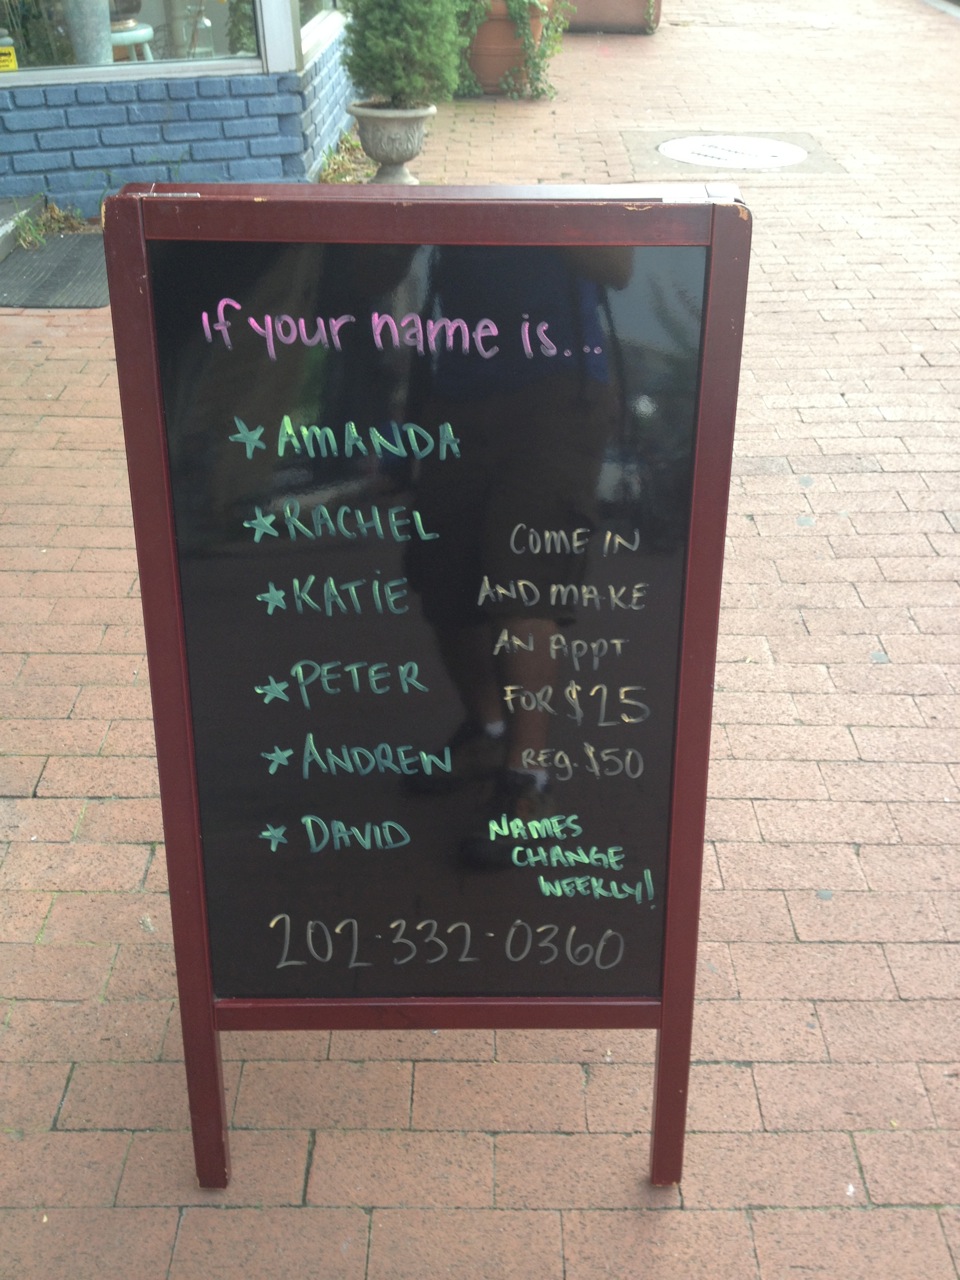 If your name is...
* AMANDA
* RACHEL
* KATiE
* PETER
* ANDREW
* DAVID
COME IN
AND MAKE
AN APPT
FOR $25
REG. $50
NAMES
CHANGE
WEEKLY!
202-332-0360